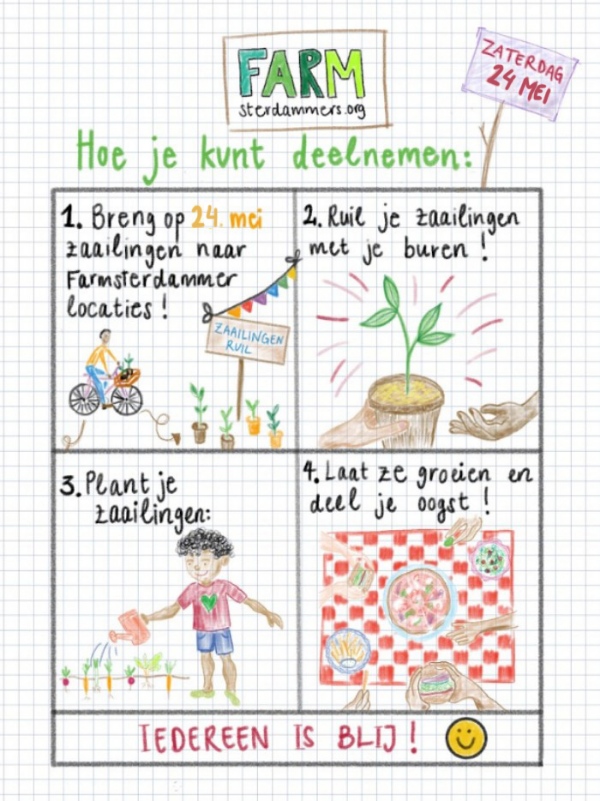 FARM
sterdammers.org
ZATERDAG
24 MEI
Hoe je kunt deelnemen:
1. Breng op 24. mei
zaailingen naar
Farmsterdammer
locaties!
ZAAILINGEN
RUIL
2. Ruil je zaailingen
met je buren!
3. Plant je
zaailingen:
4. Laat ze groeien en
deel je oogst!
IEDEREEN IS BLIJ!